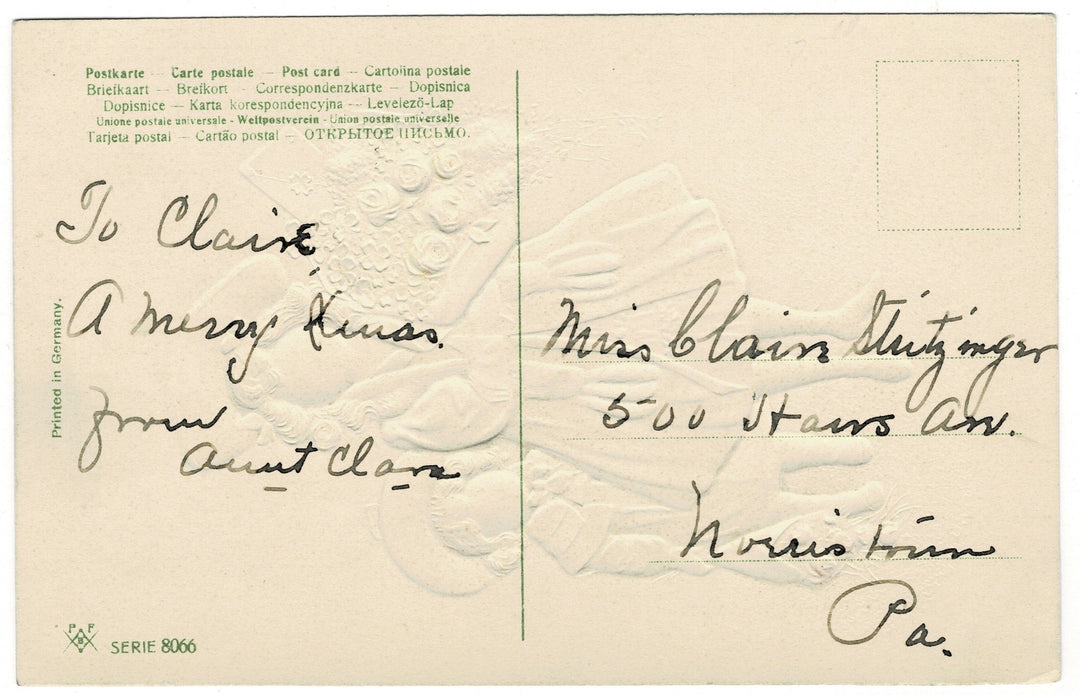 Postkarte — Carte postale — Post card — Cartolina postale
Briefkaart — Brefkort — Correspondenzkarte — Dopisnica
Dopisnice — Karta korespondencyjna — Levelező-Lap
Unione postale universale - Weltpostverein - Union postale universelle
Tarjeta postal — Cartão postal — ОТКРЫТОЕ ПИСЬМО.
To Claire
A Merry Xmas.
from
Aunt Clara
Printed in Germany.
P F
B
SERIE 8066
Miss Claire Stritzinger
500 Haws Av.
Norristown
Pa.